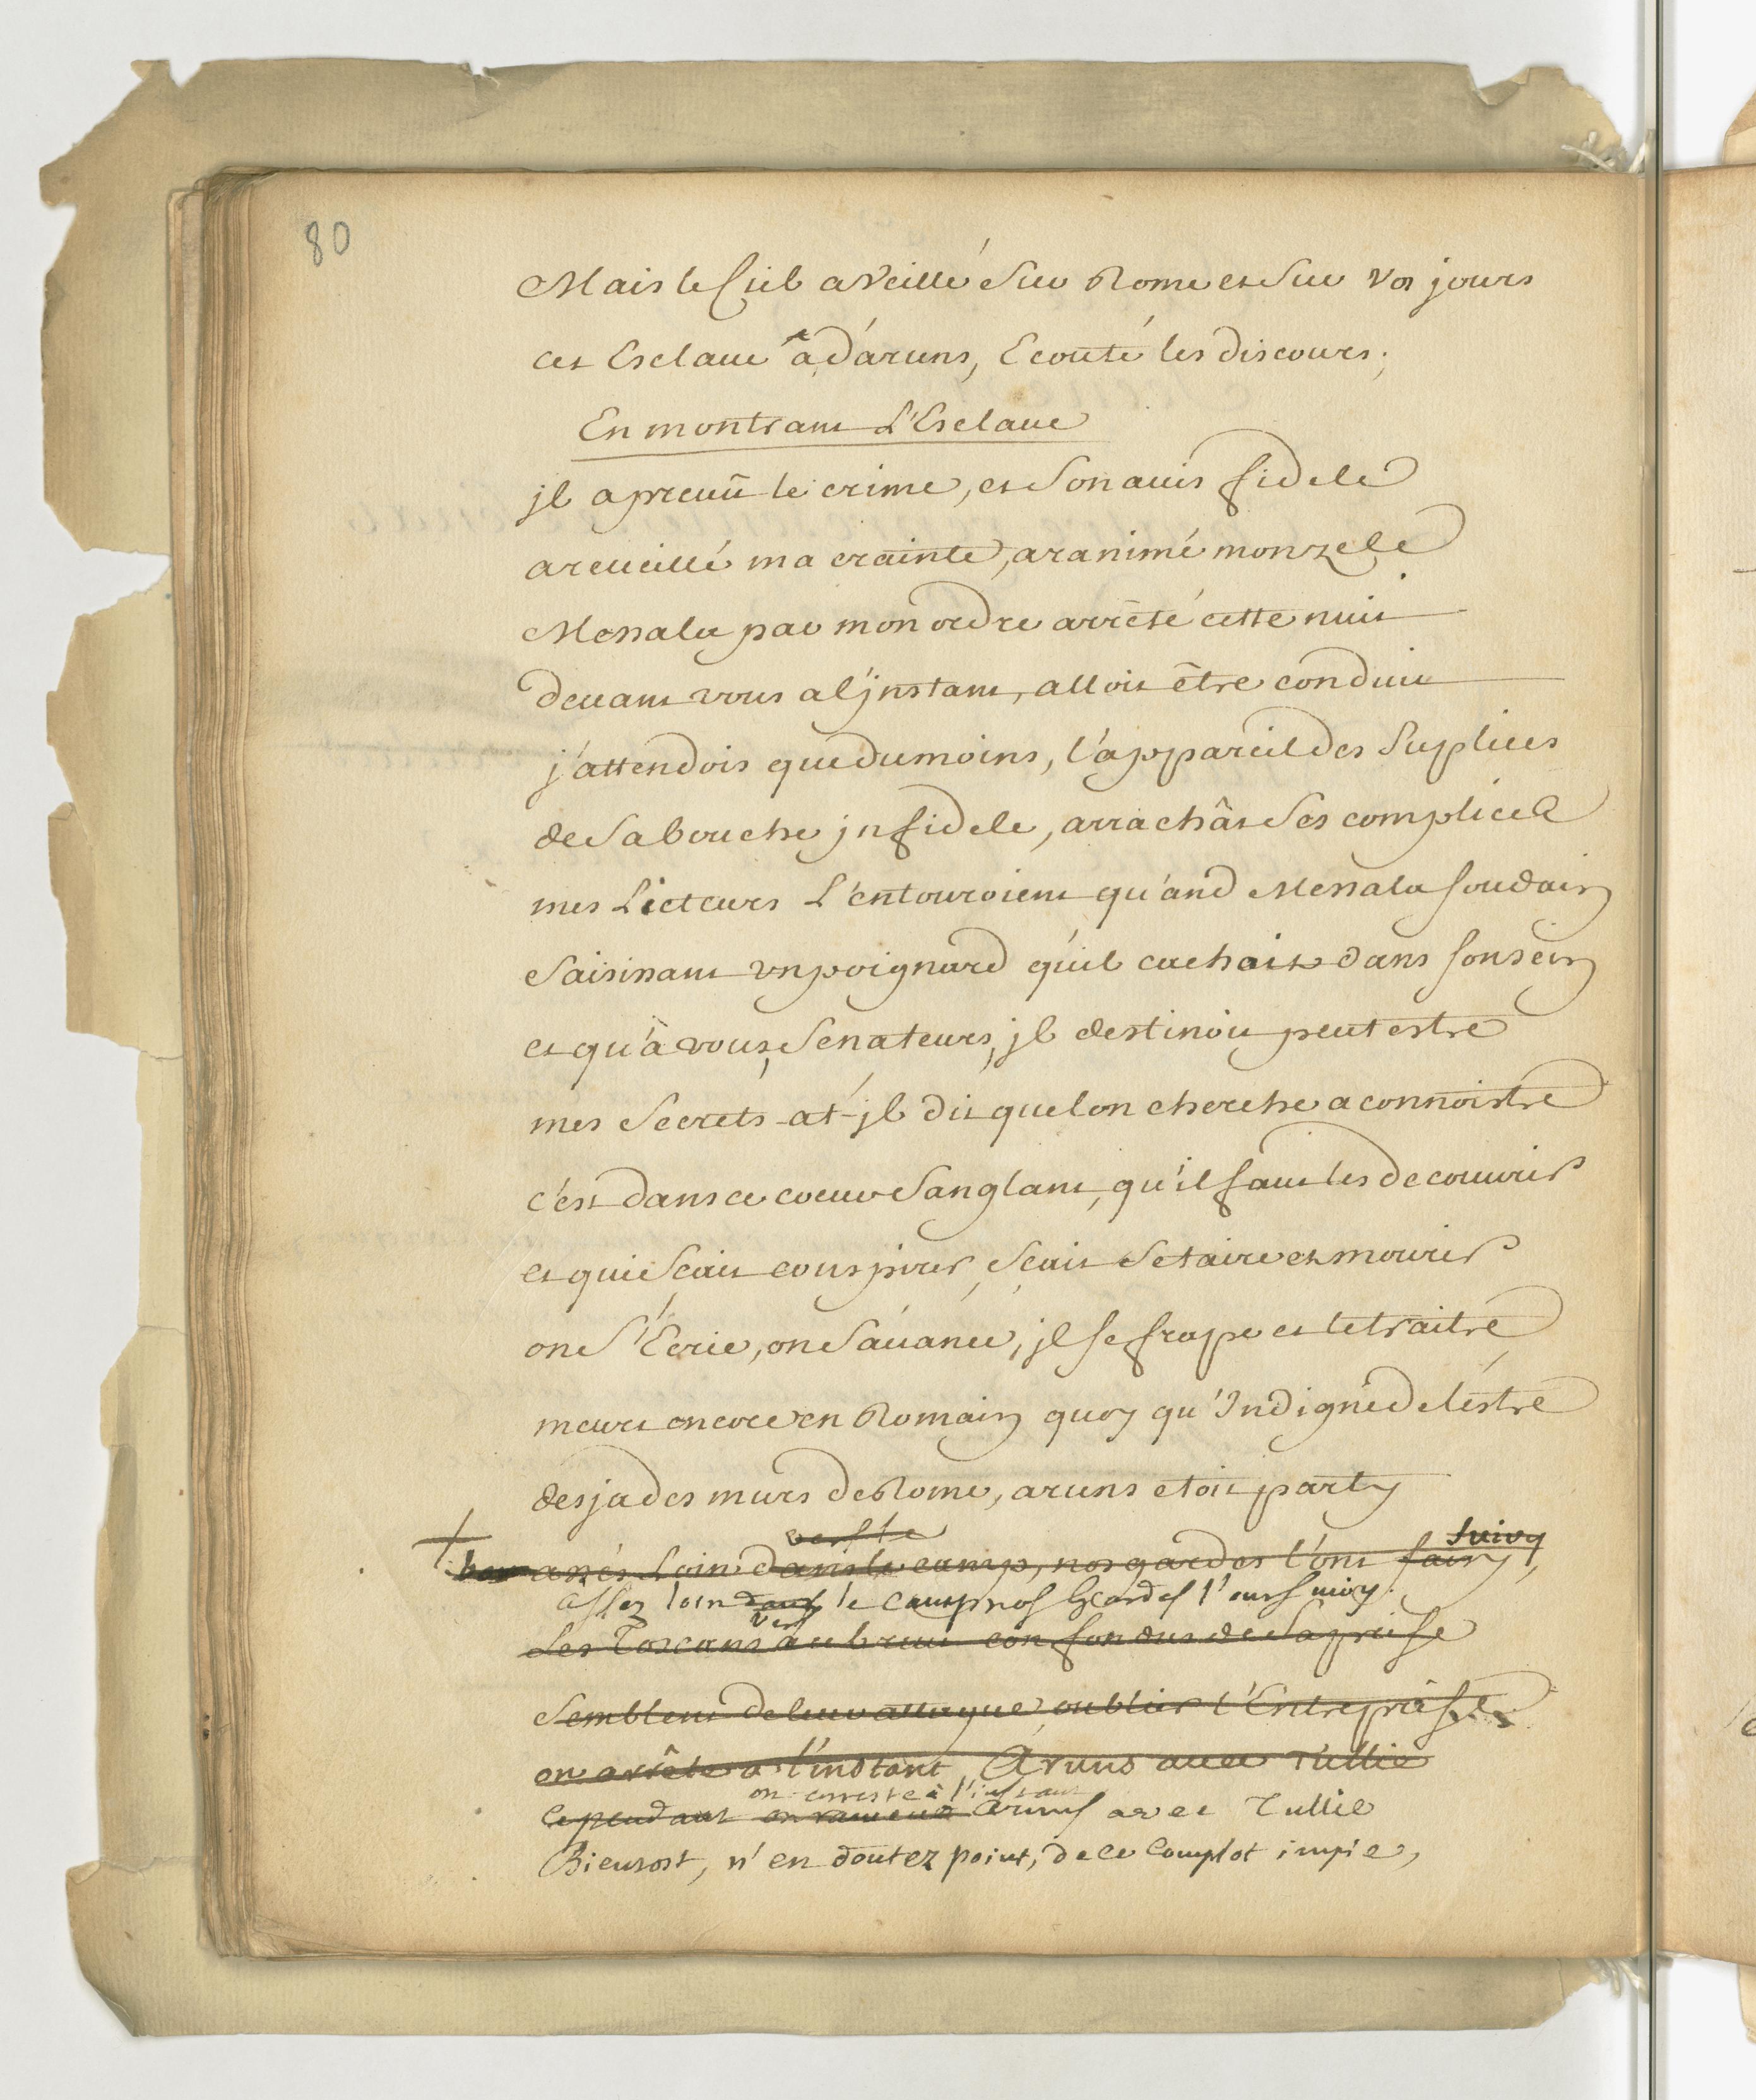 80
Mais le Ciel a Veillé Sur Rome et Sur Vos jours
cet Esclaue a d'aruns, Ecouté les discours,
En montrant L'Esclaue
jl a preuû le crime, et Son auis fidele
a reueillé ma crainte, a ranimé mon zele
Messala par mon ordre arrêté cette nuit
deuant vous a l'jnstant, alloit être conduit
j'attendois que du moins, l'appareil des Suplices
de Sa bouche jnfidele, arrachât Ses complices
mes Licteurs L'entouroient qu'and Messala soudain
Saisissant vn poignard qu'il cachait dans son sein
et qu'à vous, Senateurs, jl destinoit peut estre
mes Secrets at-jl dit que lon cherche a connoistre
c'est dans ce coeur Sanglant, qu'il faut les decouurir
et qui Scait conspirer, Scait Se taire et mourir
on S'Ecrie, on S'auance, jl se frape et le traitre
meurt encore en Romain quoy qu'Indigne de l'estre
desja des murs de Rome, aruns etoit party
vers le
suivy
assés Loin dans le camp, nos gardes l'ont suivy,
assez loin dans le camp nos Gardes l'ont suivy.
vers
Les Toscans au bruit confondus de Sa prise
Semblent de leur attaque oublier l'Entreprise
on arrête a l'instant Aruns auec Tullie
on arreste à l'instant
Cependant on rameine Aruns avec Tullie
Bientost, n'en doutez point, de ce Complot impie,